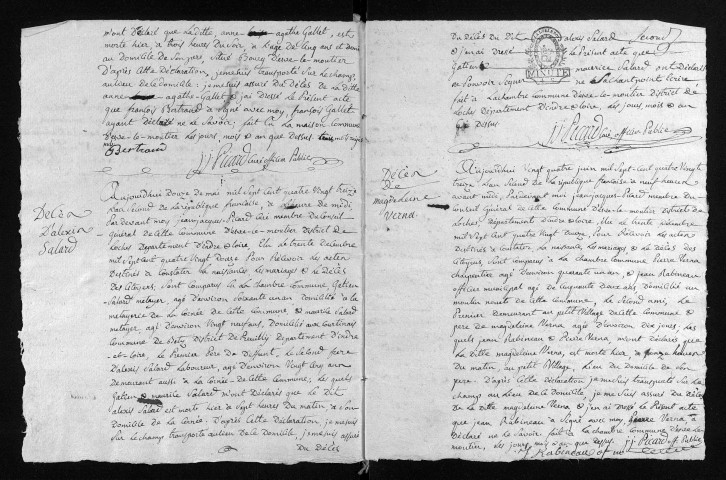 m'ont déclaré que laditte, anne agathe Gallet, est
morte hier, à trois heures du soir, à l'age de cinq ans et demi
au domicile de son pere, situé Bourg d'esve-le-moutier
D'après cette Déclaration, je me suis transporté sur le champ,
au lieu de ce domicile; je me suis assuré du Décès de la ditte
anne agathe Gallet & j'ai dressé le Présent acte
que françois Bertrand a signé avec moy, françois Gallet
ayant déclaré ne le savoir, fait en la maison commune
d'esve-le-moutier les jours, mois & an que dessus
Bertrand
jj Picard curé officier Public
Décès
D'alexis
Salard
Aujourdhui Douze de mai mil sept cent quatre vingt treize
l'an second de la république francaise, à heures de midi,
Par devant moy jean jacques Picard curé membre du conseil
général de cette commune d'esve-le-moutier District de
Loches Departement d'indre & loire, Elu le trente décembre
mil sept cent quatre vingt douze Pour recevoir les actes
Destinés à constater les naissances les mariages & les Décès
des citoyens, sont comparus en la chambre commune Gatien
Salard métayer, agé d'environ soixante un an domicilié à la
métayrie de la de cette commune, & maurice Salard
métayer, agé d'environ vingt neuf ans, domicilié aux
commune de Betz District de Preuilly Departement d'indre
-et-loire, le Premier Pere du deffunt, le second frere
d'alexis Salard Laboureur, agé d'environ vingt cinq ans
demeurant aussi à la de cette commune; les quels
Gatien & maurice Salard m'ont déclaré que le Dit
alexis Salard est morte hier à sept heures du matin à son
domicile de la D'après cette déclaration, je me suis
sur le champ transporté au lieu de ce domicile, je me suis assuré
du Décès
du Décès du Dit alexis Salard second
& j'en ai dressé le Présent acte que
Gatien maurice Salard ont déclarés
ne sachant point écrire
fait à la chambre commune d'esve-le-moutier District de
Loches Département d'indre & loire, les jours, mois & an
que Dessus
MINUTE
jj Picard curé officier Public
Décès
De
magdeleine
Verna
Aujourdhui vingt quatre juin mil sept cent quatre vingt
treize l'an second de la République francaise à neuf heures
avant midi, Par devant moi jean jacques Picard membre du
conseil Général de cette commune d'esve-le-moutier District de
Loches, département d'indre & loire, élu le trente décembre
mil sept cent quatre vingt douze, Pour recevoir les actes
Destinés à constater les naissances, les mariages & les Décès des
citoyens, sont comparus à la chambre commune Pierre Verna,
charpentier agé d'environ quarante un an, & jean Rabineau
officier municipal agé de cinquante deux ans domicilié au
moulin de cette commune, le second ami, le
Premier demeurant au petit village de cette commune &
pere de magdeleine Verna agée d'environ dix jours, les
quels jean Rabineau & Pierre Verna, m'ont déclarés que
la ditte magdeleine Verna, est morte hier à onze heures
du matin, au petit village, lieu du domicile de son
pere. D'après cette déclaration je me suis transporté sur le
champ au lieu de ce domicile, je me suis assuré du Décès
de la ditte magdeleine Verna, & j'en ai dressé le Présent acte
que jean Rabineau a signé avec moy, Pierre Verna a
déclaré ne le savoir, fait à la chambre commune d'esve-le
moutier, les jours, mois & an que dessus. jj Picard off. Public
J Rabineau